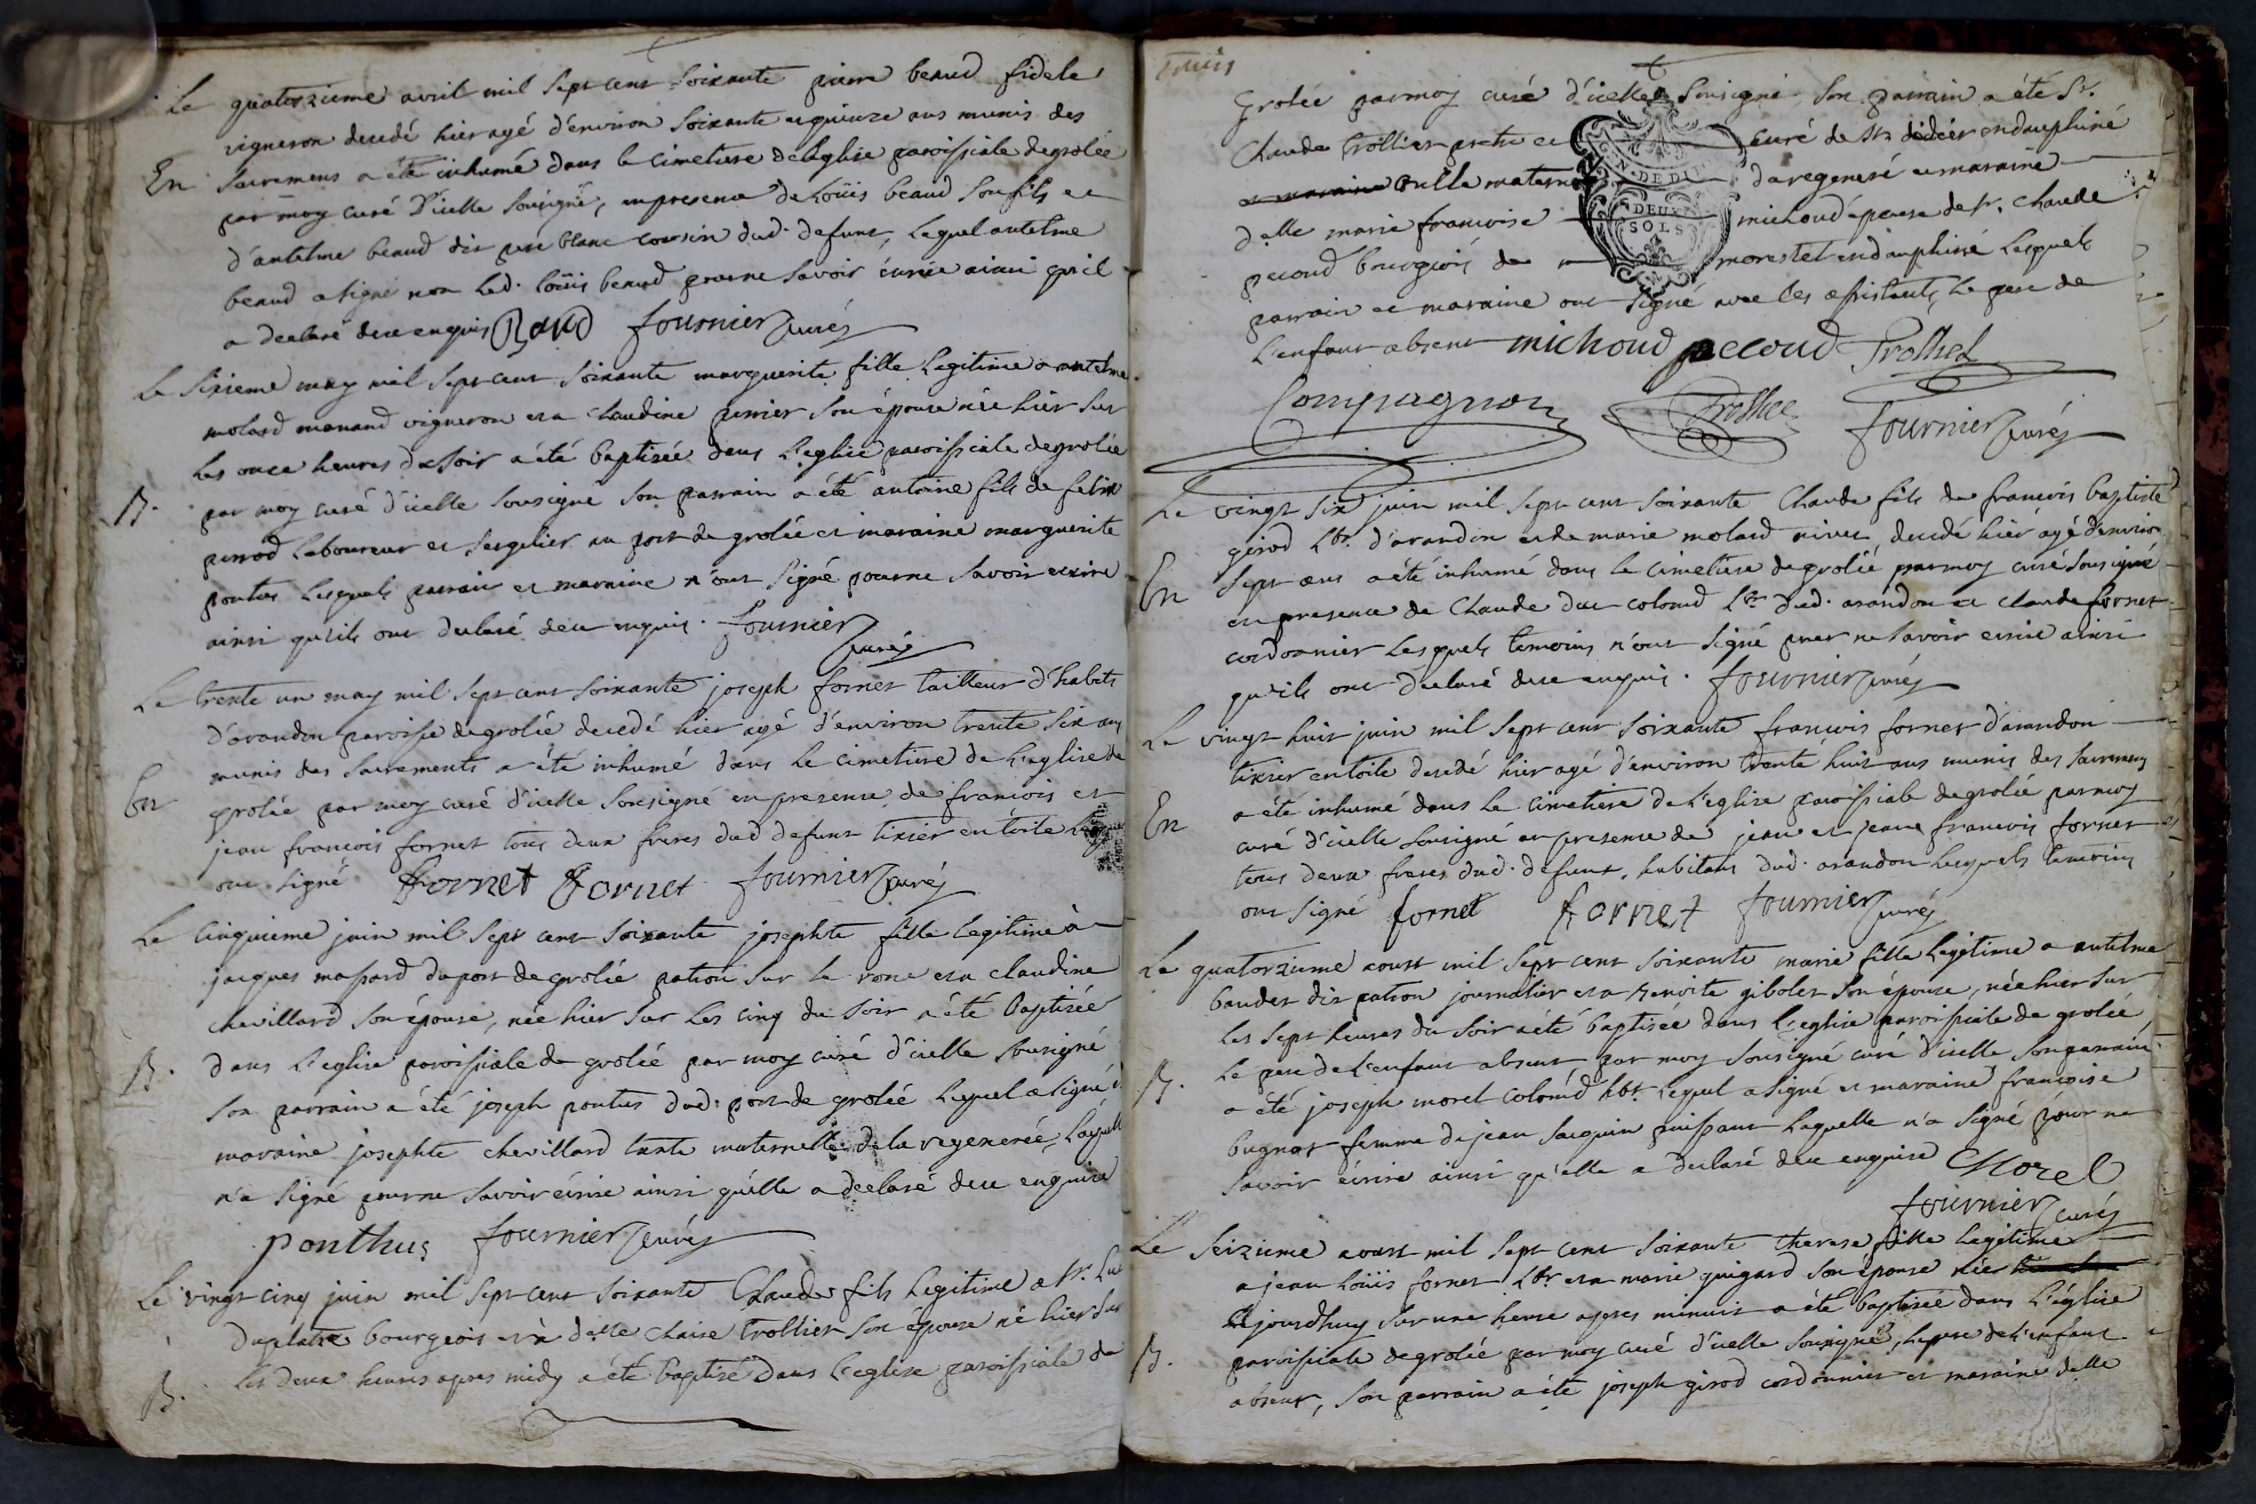 Le quatorzieme avril mil sept cent soixante pierre beaud fidele
vigneron decedé hier agé d'environ soixante et quinze ans munis des
En sacremens a été inhumé dans le cimetiere de l'eglise paroissiale de grolée
par moy curé d'icelle soussigné, en presence de Loüis beaud son fils et
d'antelme beaud dit pere blanc cousin dud. defunt, lequel antelme
beaud a signé non led. loüis beaud pour ne savoir écrire ainsi qu'il
a declaré de ce enquis Baud fournier curé
Le sixieme may mil sept cent soixante marguerite fille legitime a antelme
molard manand vigneron et a claudine perrier son épouse née hier sur
les onze heures du soir a été baptisée dans l'eglise paroissiale de grolée
B. par moy curé d'icelle soussigné son parrain a été antoine fils de felix
perrod laboureur et sergelier au port de grolée et maraine marguerite
pontus lesquels parrain et marraine n'ont signé pour ne savoir ecrire
ainsi qu'ils ont declaré de ce enquis. fournier
curé
Le trente un may mil sept cent soixante joseph fornet tailleur d'habits
d'arandon paroisse de grolée decedé hier agé d'environ trente six ans
munis des sacrements a été inhumé dans le cimetiere de l'eglise de
En grolée par moy curé d'icelle soussigné en presence de francois et
jean francois fornet tous deux freres dud defunt tixier en toile
ont signé fornet fornet fournier curé
Le cinquieme juin mil sept cent soixante josephte fille legitime à
jacques massard du port de grolée patron sur le rone et a claudine
chevillard son épouse, née hier sur les cinq du soir a été baptisée
B. dans l'eglise paroissiale de grolée par moy curé d'icelle soussigné
son parrain a été joseph pontus dud. port de grolée lequel a signé
maraine josephte chevillard tante maternelle de la regenerée, laquelle
n'a signé pour ne savoir écrire ainsi qu'elle a declaré de ce enquise
ponthus fournier curé
Le vingt cinq juin mil sept cent soixante Claude fils legitime a sr.
duplatre bourgeois et à delle claire trollier son épouse né hier sur
B. les deux heures apres midy a été baptisé dans l'eglise paroissiale de
Grolée par moy curé d'icelle soussigné, son parrain a été Sr.
Claude trollier pretre et curé de st didier en dauphiné
oncle maternel d. regeneré et maraine
delle marie francoise michoud épouse de sr. claude
pecoud bourgeois de morestel en dauphiné lesquels
parrain et maraine ont signé avec les assistants, le pere de
l'enfant absent michoud pecoud Trollier
Compagnon Trollier fournier curé
Le vingt six juin mil sept cent soixante Claude fils de francois baptiste
girod lbr. d'arandon et de marie molard decedé hier agé d'environ
En sept ans a été inhumé dans le cimetiere de grolée par moy curé soussigné
en presence de Claude duc colomd lbr dud. arandon et claude fornet
cordonnier lesquels temoins n'ont signé pour ne savoir ecrire ainsi
qu'ils ont declaré de ce enquis. fournier curé
Le vingt huit juin mil sept cent soixante francois fornet d'arandon
tixier en toile decedé hier agé d'environ trente huit ans munis des sacremens
En a été inhumé dans le cimetiere de l'eglise paroissiale de grolée par moy
curé d'icelle soussigné en presence de jean et jean francois fornet
tous deux freres dud. defunt. habitans dud. arandon lesquels temoins
ont signé fornet fornet fournier curé
Le quatorzieme aoust mil sept cent soixante marie fille legitime a antelme
baudet dit patron journalier et a benoite gibolet son épouse, née hier sur
les sept heures du soir a été baptisée dans l'eglise paroissiale de grolée
B. le pere de l'enfant absent, par moy soussigné curé d'icelle son parrain
a été joseph morel colomd lbr. lequel a signé et maraine francoise
bugnot femme de jean puissant laquelle n'a signé pour ne
savoir écrire ainsi qu'elle a declaré de ce enquise Morel
fournier curé
Le seizieme aoust mil sept cent soixante therese fille legitime
a jean loüis fornet lbr. et a marie guigard son épouse née
aujourdhuy sur une heure apres minuit a été baptisée dans l'église
B. paroissiale de grolée par moy curé d'icelle soussigné, le pere de l'enfant
absent, son parrain a été joseph girod cordonnier et maraine delle
GEN. DE DI
DEUX
SOLS